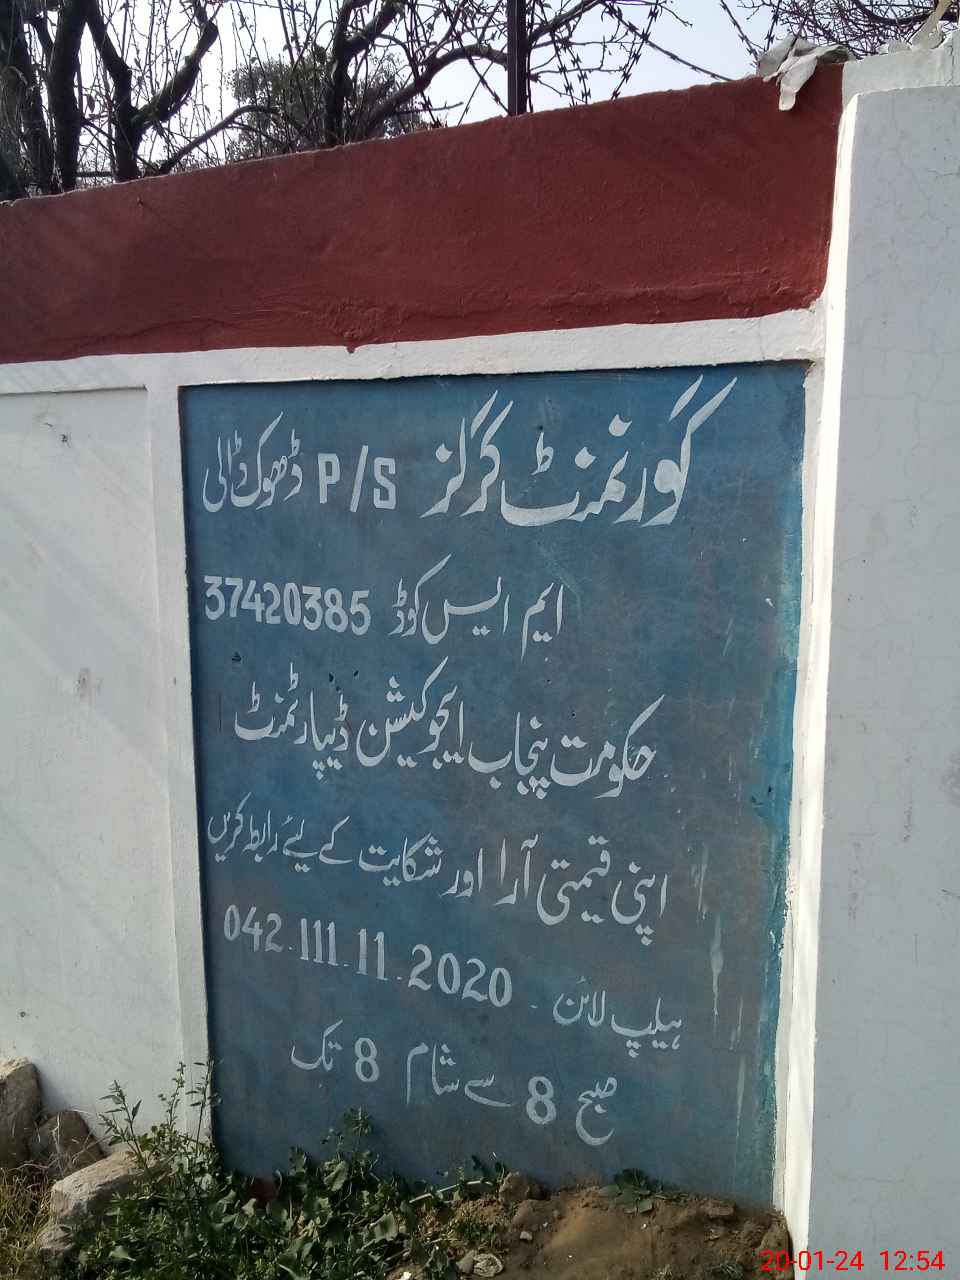 گورنمنٹ گرلز P/S ڈھوک ڈالی
ایم ایس کوڈ 37420385
حکومت پنجاب ایجوکیشن ڈیپارٹمنٹ
اپنی قیمتی آرا اور شکایت کے لیئے رابطہ کریں
ہیلپ لائن - 042.111.11.2020
صبح 8 سے شام 8 تک
20-01-24 12:54